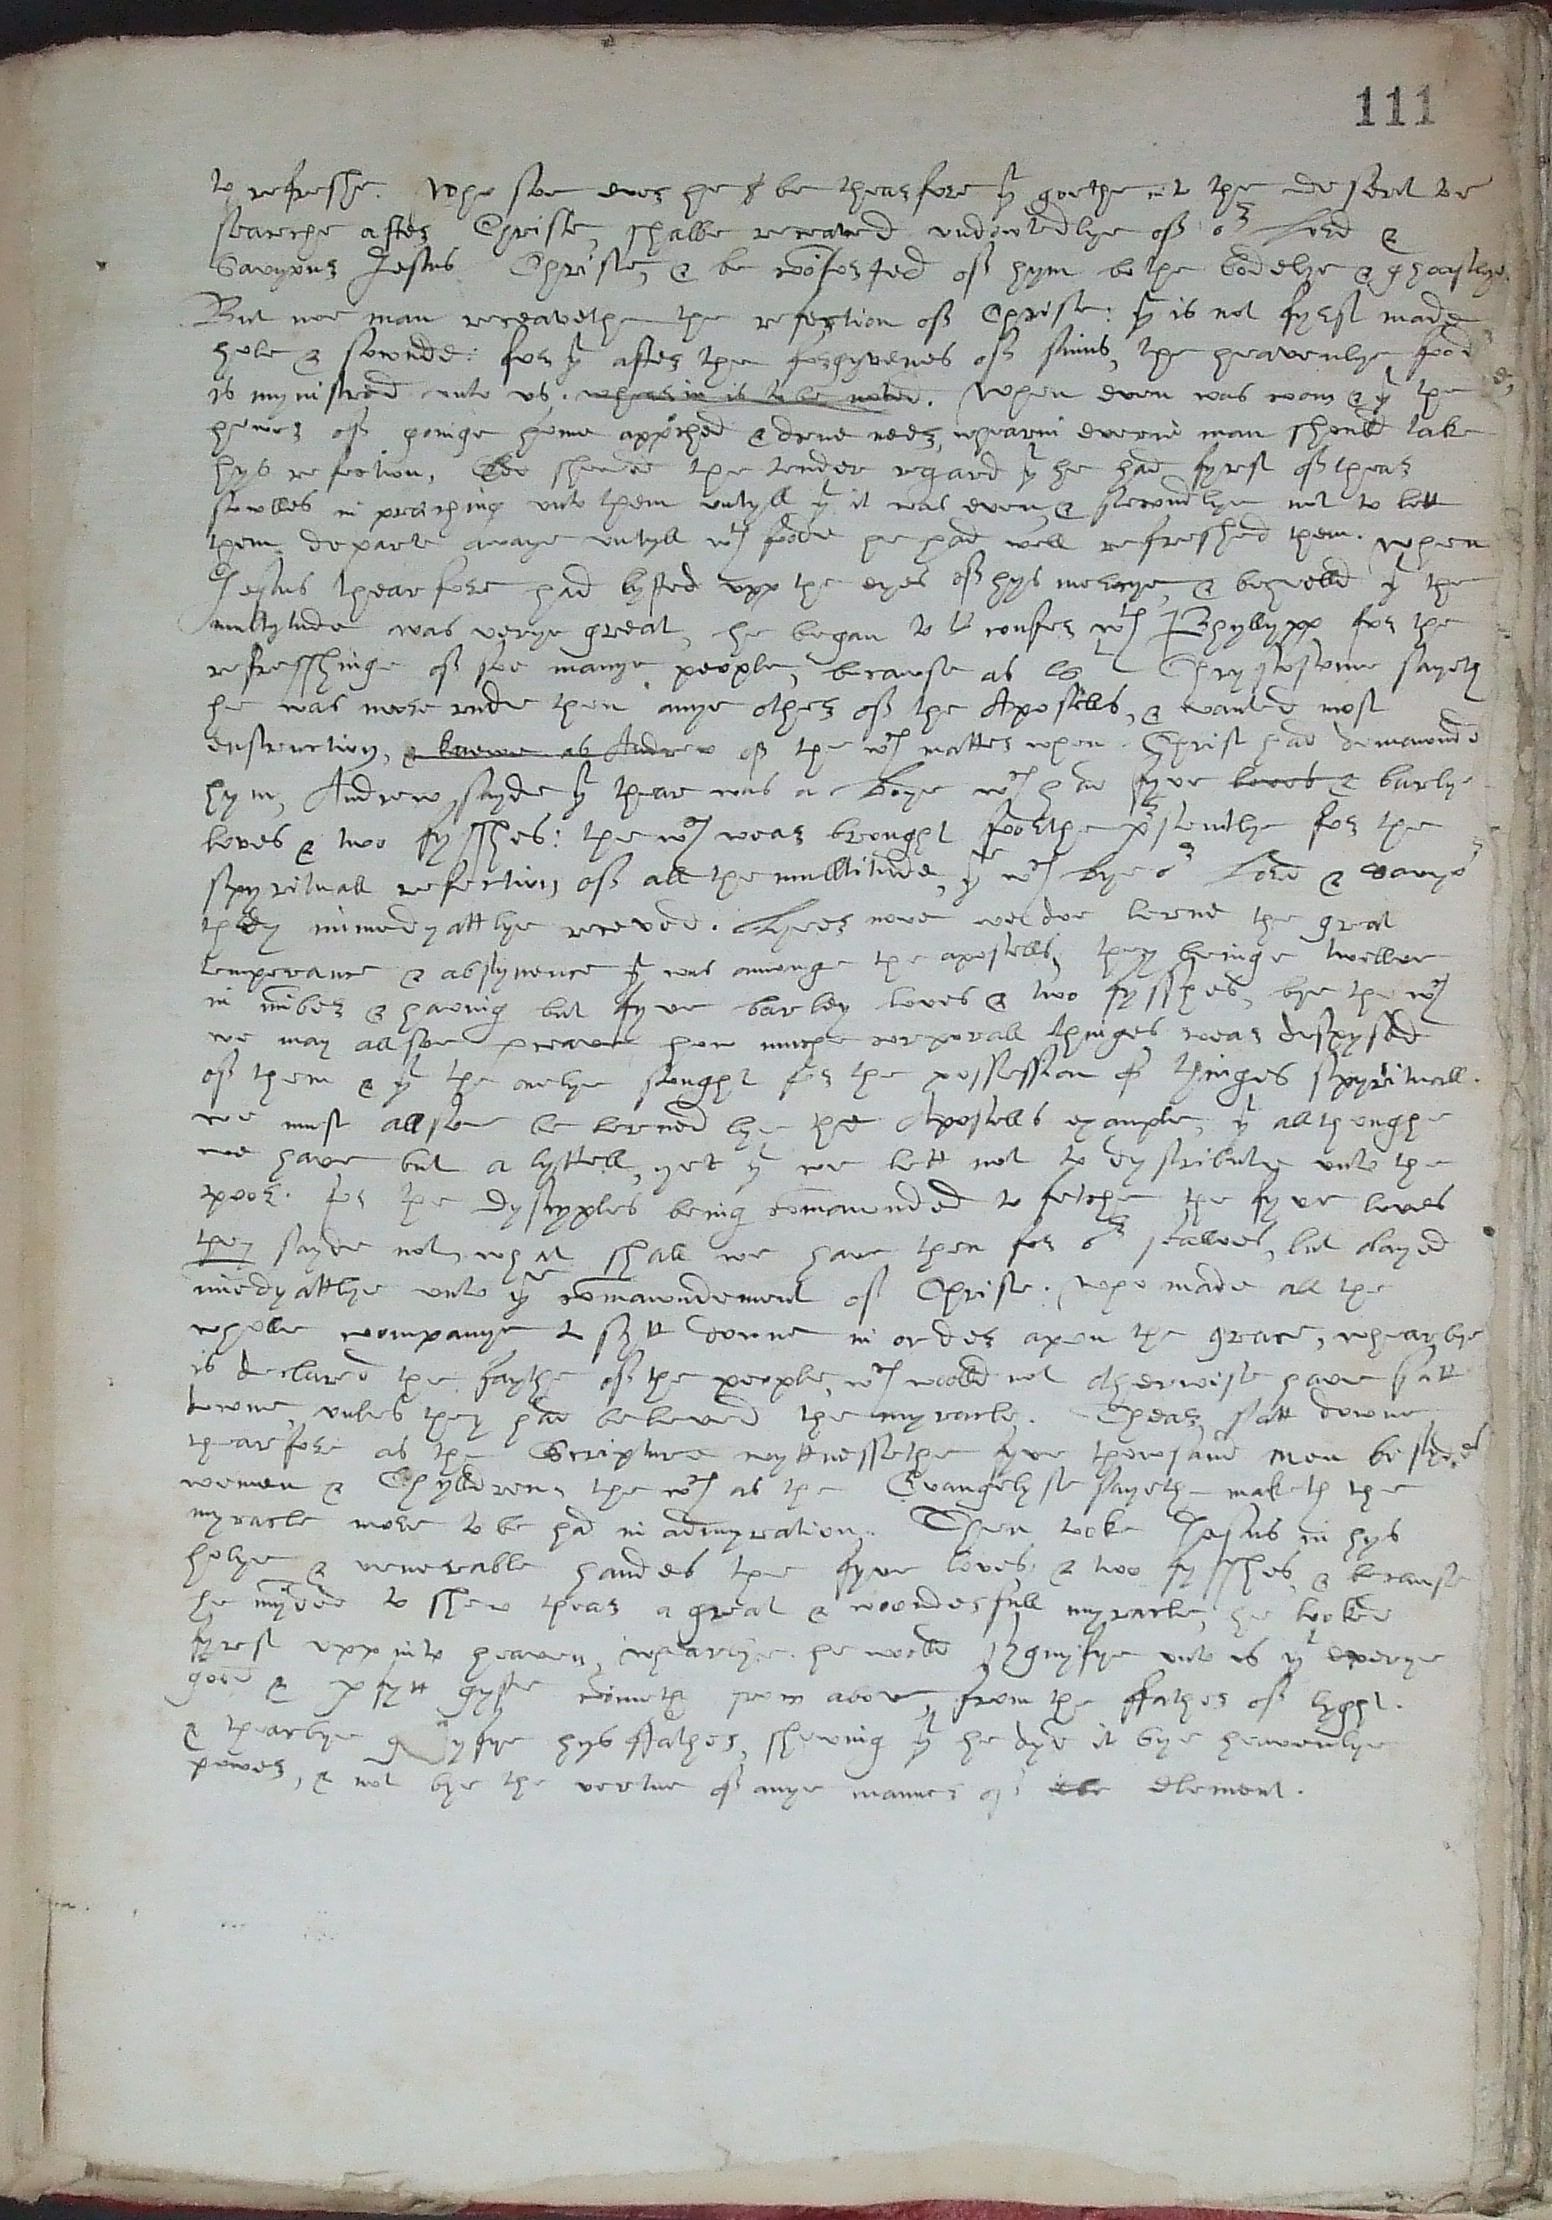 111
to refreshe. Who soe ever he be thearfore yt goethe into the desert to
searche after Christe, shalbe receaved undowtedlye off or Lord &
Savyour Jesus Christe, & be cōforted off hym bothe bodelye & ghoastlye.
But noe man receavethe the refection off Christe: yt is not fyrst made
hole & sownde: for yt after the forgyvenes off sinns, the heavenlye foode
is mynistred unto us. whearin is to be noted. When even was com & yt the
hower off goinge home apprched & drue neer, whearin everie man should take
hys refection, he shewed the tender regard yt he had fyrst off thear
sowlles in preaching unto them untyll yt it was even, & secondlye not to lett
them departe awaye untyll wth foode he had well refreshed them. When
Jesus thearfore had lyfted upp the eyes off hys mercye, & behelld yt the
multytude was verye great, he began to confer wth Phyllypp for the
refresshinge off soe manye people, because as St Chrysostome sayeth
he was more rude then anye other off the Apostells, & wanted most
enstruction, & knewe as Andrew off the wch matter when Christ had demaunded
hym, Andrew sayde yt thear was a boye wch had fyve loves & barlye
loves & two fysshes: the wch wear brought foorthe presentlye for the
spyrituall refection off all the mulltitude, ye wch bye or Lord & Savyor
they immedyattlye receved. Hyer now we doe lerne the great
temperance & abstynence yt was amonge the apostells, they beinge twellve
in nūber & having but fyve barley loves & two fysshes, bye the wch
we may allsoe preave how muche corporall thinges wear despysed
off them & yt the onelye sought for the possession of thinges spyrituall.
we must allsoe be lerned bye the Apostells example, yt allthoughe
we have but a lyttell, yet yt we lett not to dystribute unto the
poor. for the dyscyples being cōmaunded to fetche the fyve loves
they sayde not, what shall we have then for or sealves, but obayed
imedyattlye unto ye cōmaundement off Christe. who made all the
wholle companye to sytt downe in order apon the grace, whearbye
is declared the faythe off the people, wch woold not otherwise have satt
downe, unles they had beleved the myracle. Thear satt downe
thearfore as the Scripture wyttnessethe fyve thowsand men besydes
women & Chylldren, the wch as the Evangelyste sayethe maketh the
myracle more to be had in admyration. Then tooke Jesus in hys
holye & venerable handes the fyve loves & two fysshes, & because
he mynded to shew thear a great & woonderfull myracle, he looked
fyrst upp into heaven, whearbye he woold sygnifye unto us yt everye
good & pfytt gyfte cometh from above, from the ffather off lyght.
& thearbye gloryfye hys ffather, shewing yt he dyd it bye heavenlye
power, & not bye the vertue off anye manner off ele element.